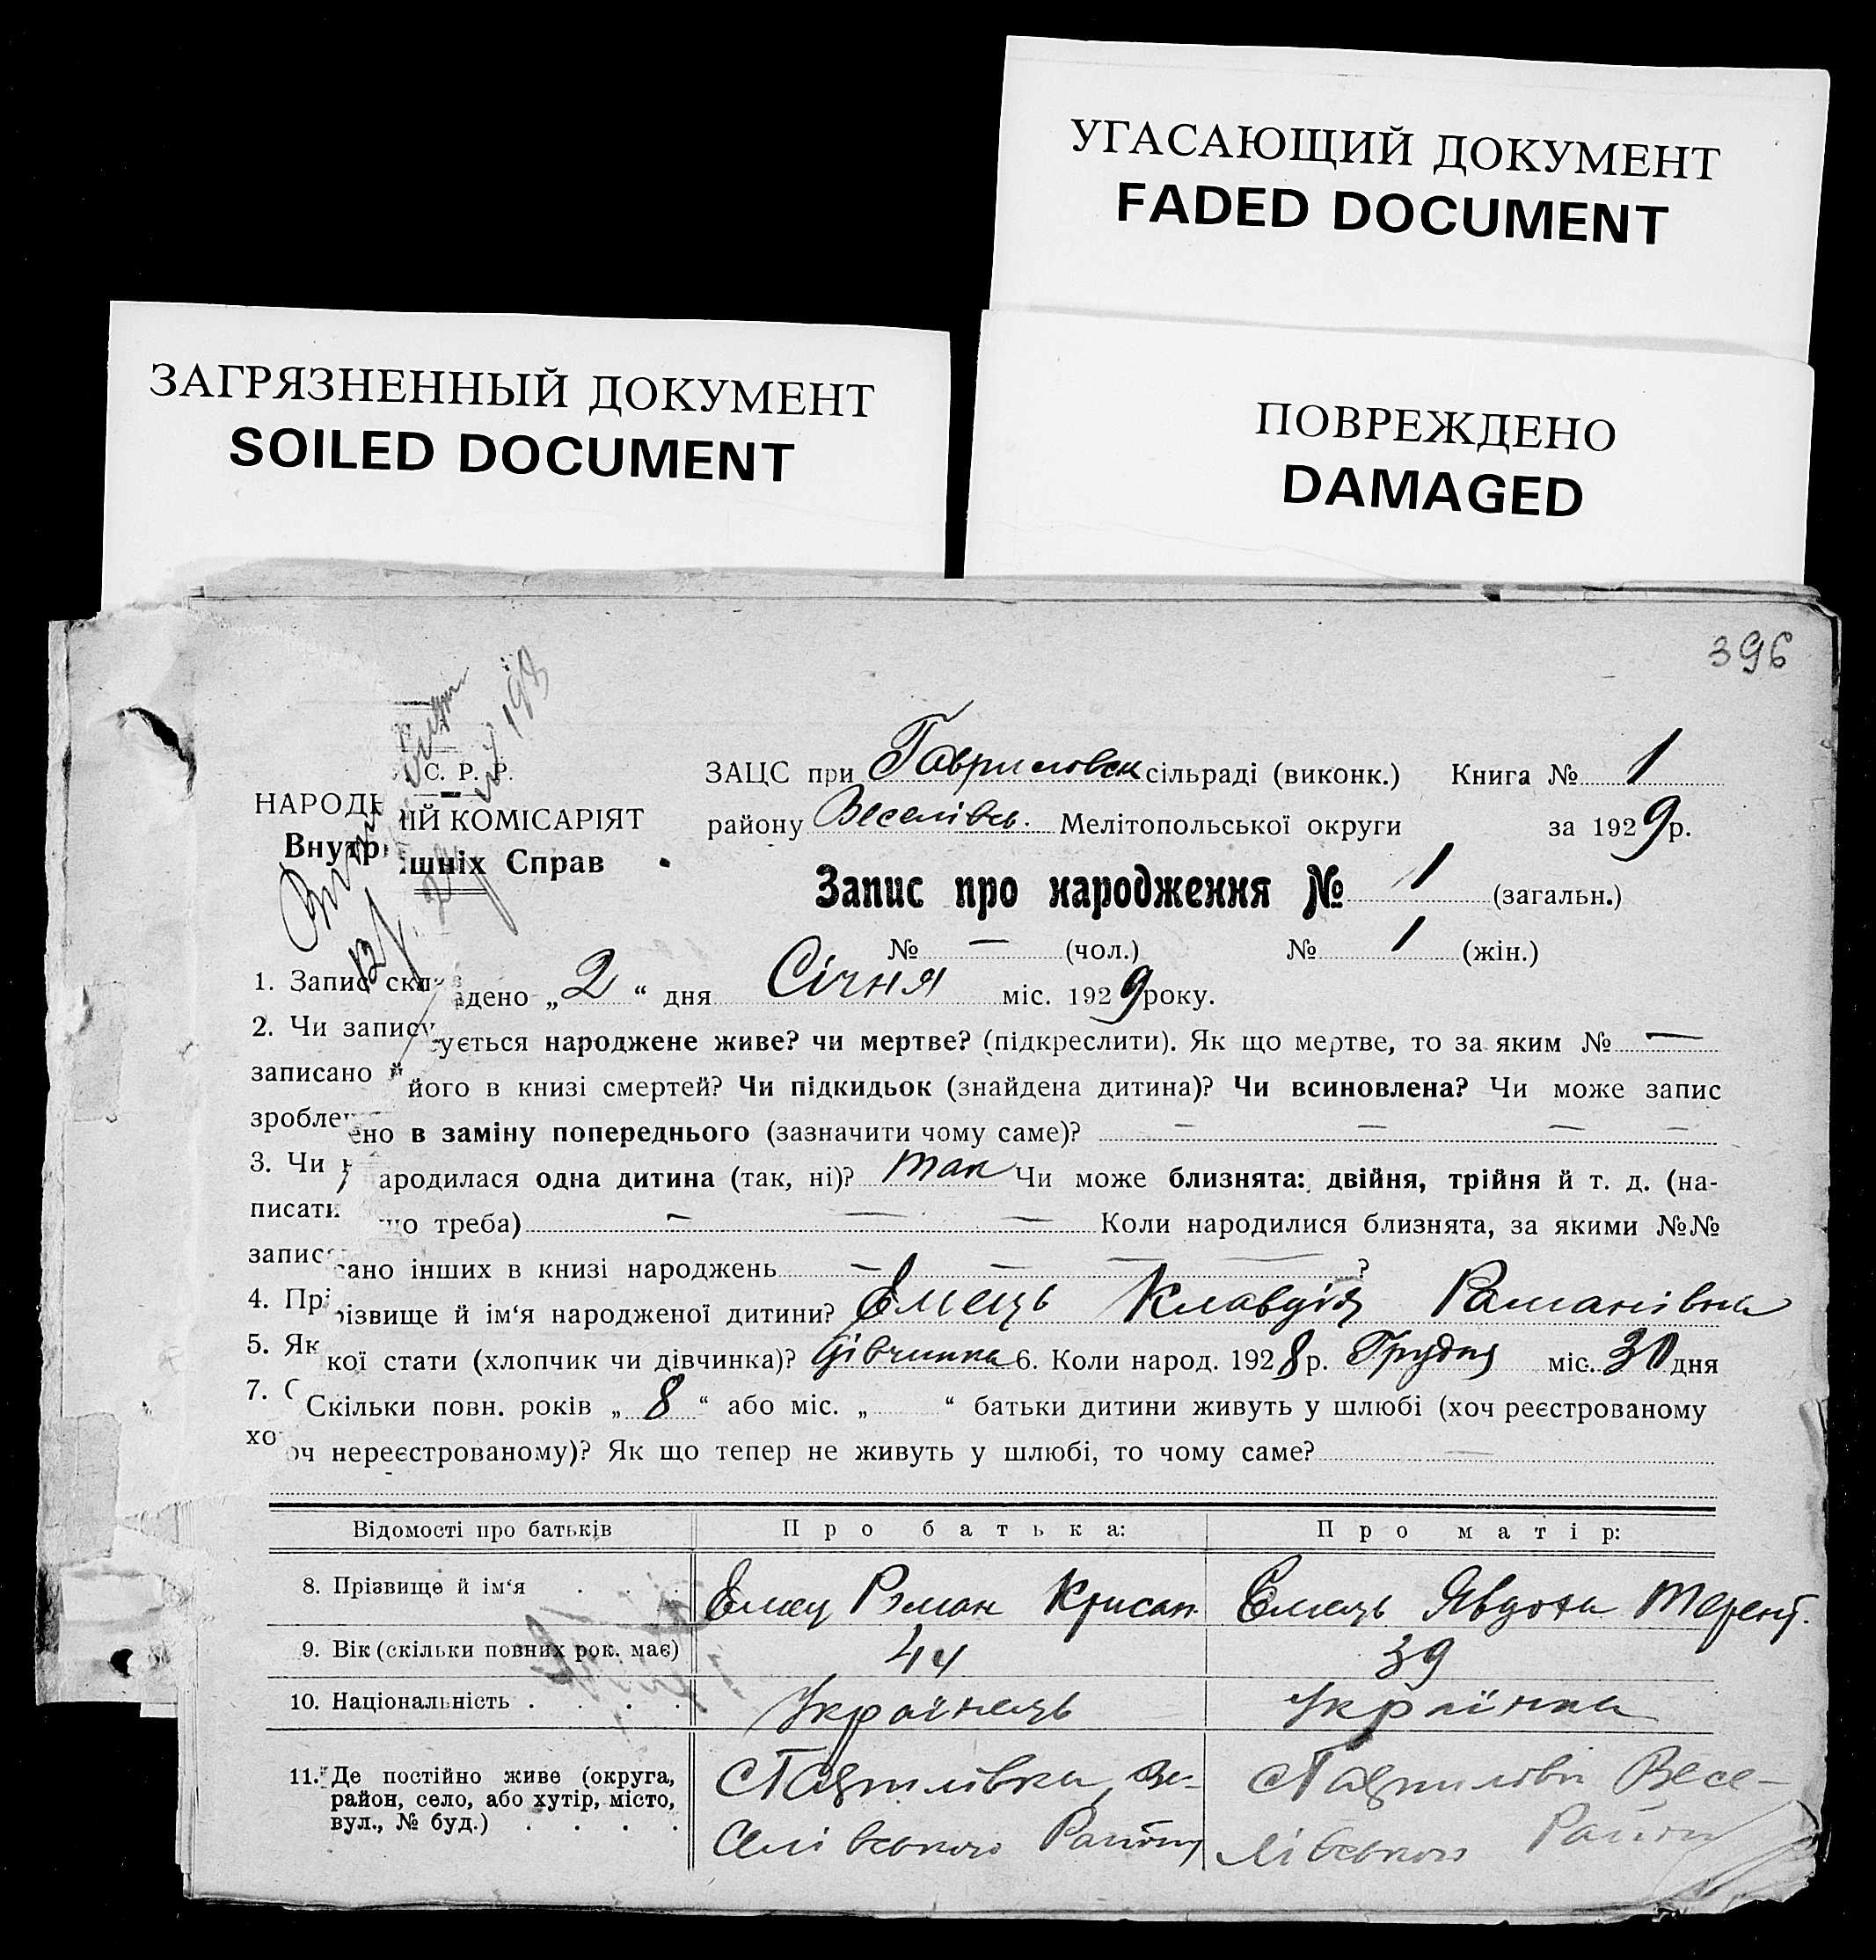 УГАСАЮЩИЙ ДОКУМЕНТ
FADED DOCUMENT
ЗАГРЯЗНЕННЫЙ ДОКУМЕНТ
SOILED DOCUMENT
ПОВРЕЖДЕНО
DAMAGED
396
С. Р. Р.
НАРОДНІЙ КОМІСАРІЯТ
Внутрішніх Справ
ЗАЦС при Гавриловск сільраді (виконк.) Книга № 1
району Веселівсь. Мелітопольської округи за 1929 р.
Запис про народження № 1 (загальн.)
№ — (чол.) № 1 (жін.)
1. Запис складено „2“ дня Січня міс. 1929 року.
2. Чи записується народжене живе? чи мертве? (підкреслити). Як що мертве, то за яким № —
записано його в книзі смертей? Чи підкидьок (знайдена дитина)? Чи всиновлена? Чи може запис
зроблено в заміну попереднього (зазначити чому саме)? — — — —
3. Чи народилася одна дитина (так, ні)? так Чи може близнята: двійня, трійня й т. д. (на-
писати що треба) — — — Коли народилися близнята, за якими №№
записано інших в книзі народжень — — — — ?
4. Прізвище й ім‘я народженої дитини? Емець Клавдія Романівна
5. Якої стати (хлопчик чи дівчинка)? дівчинка 6. Коли народ. 1928 р. Грудня міс. 30 дня
7. Скільки повн. років „8“ або міс. „ “ батьки дитини живуть у шлюбі (хоч реєстрованому
хоч нереєстрованому)? Як що тепер не живуть у шлюбі, то чому саме? —
Відомості про батьків Про батька: Про матір:
8. Прізвище й ім‘я . . . Емец Роман Крисан. Емець Явдоха Терент.
9. Вік (скільки повних рок. має) 44 39
10. Національність . . . . Українець Українка
11. Де постійно живе (округа,
район, село, або хутір, місто,
вул., № буд.) . . . .
с Гаврилівка, Ве-
селівського Району
с Гаврилівк Весе-
лівського Району